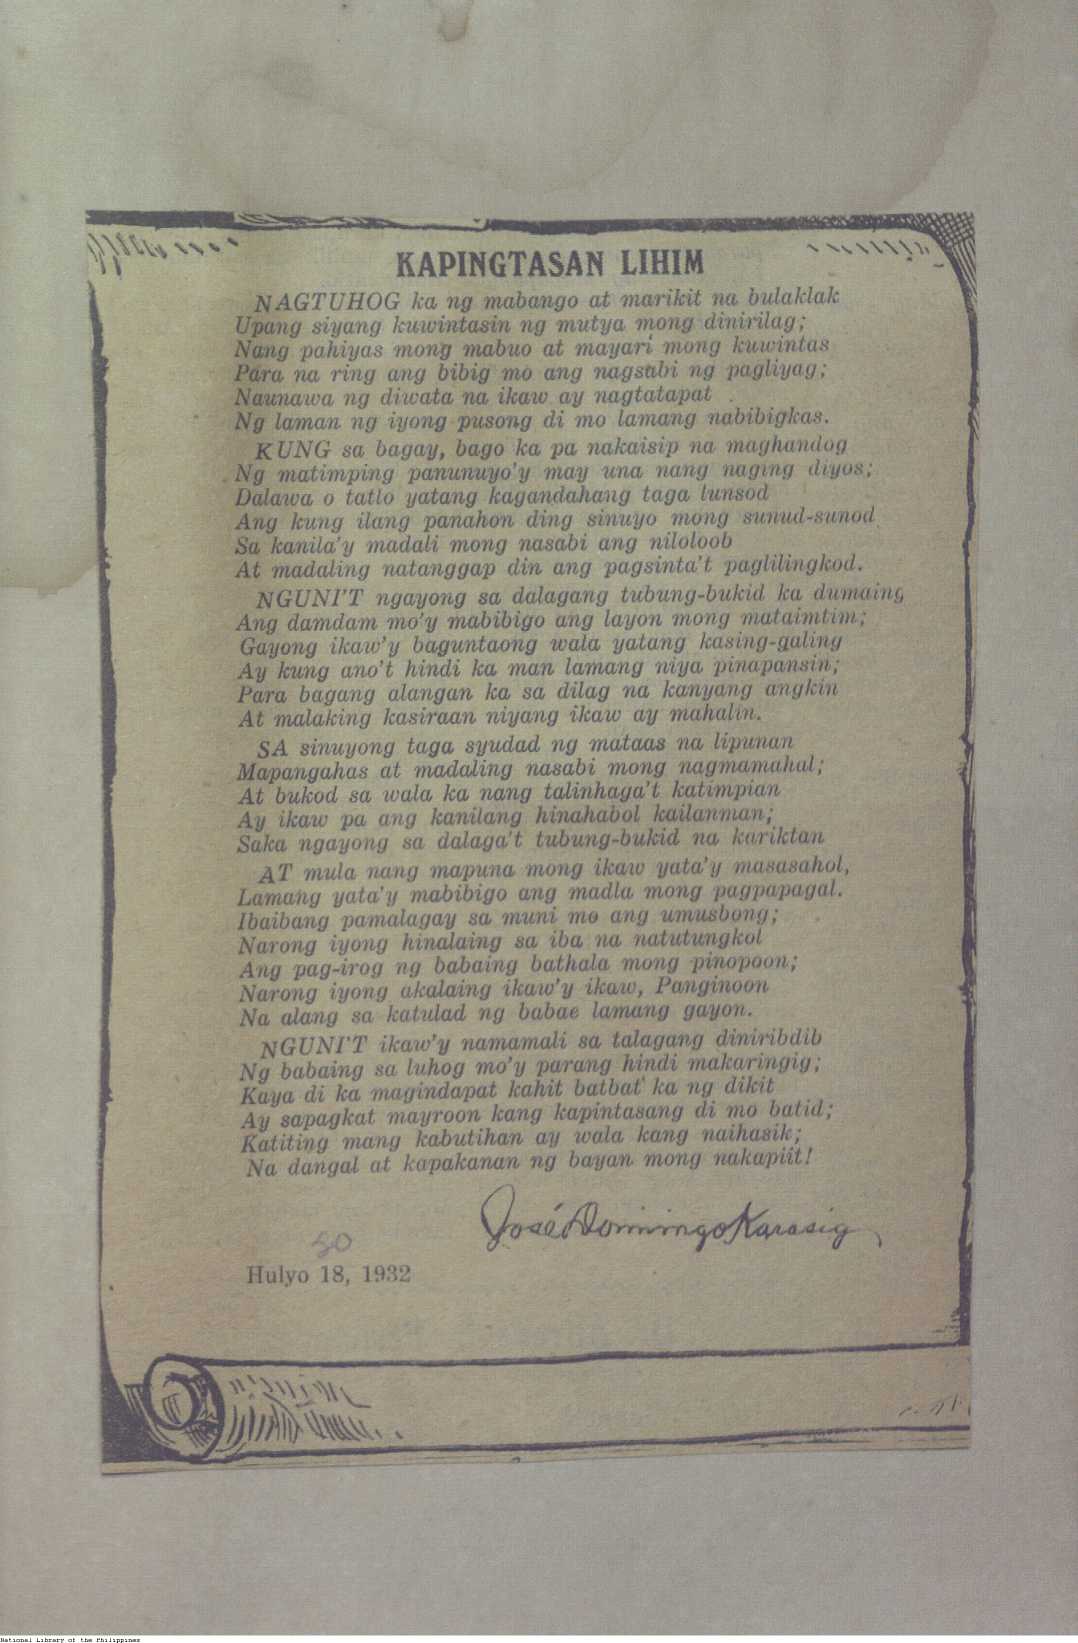 KAPINGTASAN LIHIM
NAGTUHOG ka ng mabango at marikit na bulaklak
Upang siyang kuwintasin ng mutya mong dinirilag;
Nang pahiyas mong mabuo at mayari mong kuwintas
Para na ring ang bibig mo ang nagsabi ng pagliyag;
Naunawa ng diwata na ikaw ay nagtatapat
Ng laman ng iyong pusong di mo lamang nabibigkas.
KUNG sa bagay, bago ka pa nakaisip na maghandog
Ng matimping panunuyo'y may una nang naging diyos;
Dalawa o tatlo yatang kagandahang taga lunsod
Ang kung ilang panahon ding sinuyo mong sunud-sunod
Sa kanila'y madali mong nasabi ang niloloob
At madaling natanggap din ang pagsinta't paglilingkod.
NGUNI'T ngayong sa dalagang tubung-bukid ka dumaing
Ang damdam mo'y mabibigo ang layon mong mataimtim;
Gayong ikaw'y baguntaong wala yatang kasing-galing
Ay kung ano't hindi ka man lamang niya pinapansin;
Para bagang alangan ka sa dilag na kanyang angkin
At malaking kasiraan niyang ikaw ay mahalin.
SA sinuyong taga syudad ng mataas na lipunan
Mapangahas at madaling nasabi mong nagmamahal;
At bukod sa wala ka nang talinhaga't katimpian
Ay ikaw pa ang kanilang hinahabol kailanman;
Saka ngayong sa dalaga't tubung-bukid na kariktan
AT mula nang mapuna mong ikaw yata'y masasahol,
Lamang yata'y mabibigo ang madla mong pagpapagal.
Ibaibang pamalagay sa muni mo ang umusbong;
Narong iyong hinalaing sa iba na natutungkol
Ang pag-irog ng babaing bathala mong pinopoon;
Narong iyong akalaing ikaw'y ikaw, Panginoon
Na alang sa katulad ng babae lamang gayon.
NGUNI'T ikaw'y namamali sa talagang diniribdib
Ng babaing sa luhog mo'y parang hindi makaringig;
Kaya di ka magindapat kahit batbat ka ng dikit
Ay sapagkat mayroon kang kapintasang di mo batid;
Katiting mang kabutihan ay wala kang naihasik;
Na dangal at kapakanan ng bayan mong nakapiit!
José Domingo Karasig
50
Hulyo 18, 1932
National Library of the Philippines